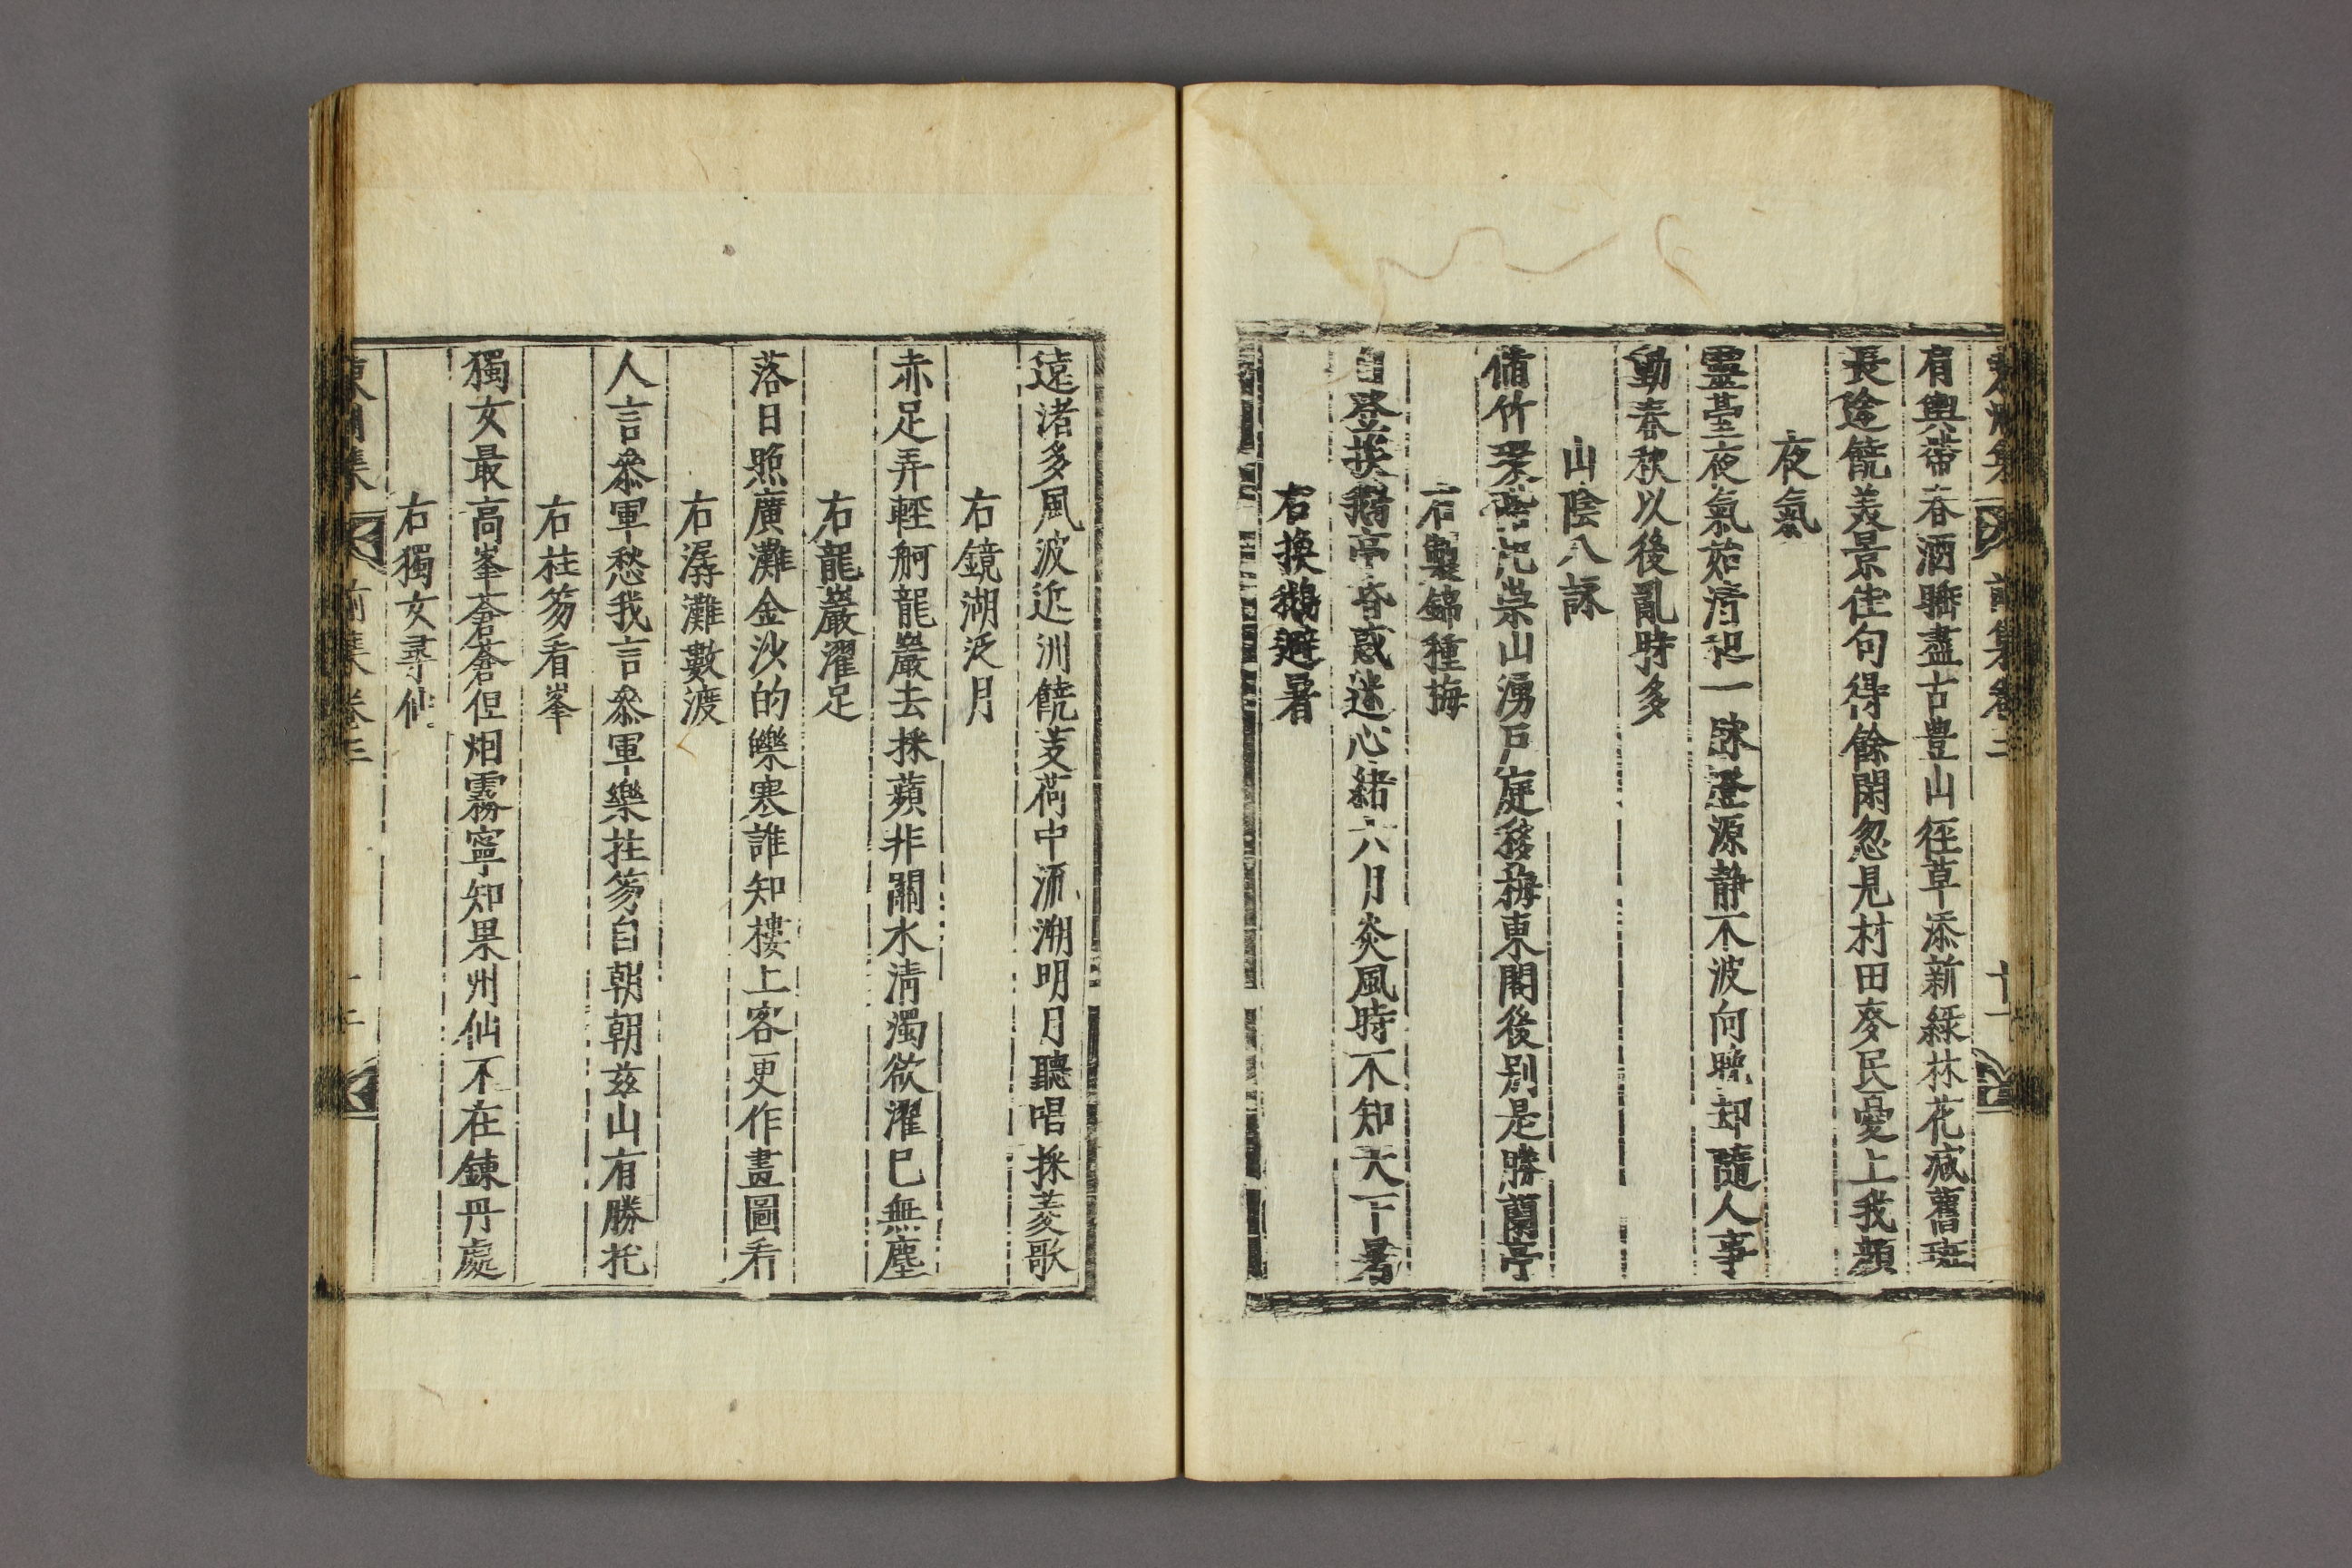 肩輿帶春酒醉盡古豊山徑草添新綠林花减舊斑
長途饒美景佳句得餘閑忽見村田麥民憂上我顔
夜氣
靈臺夜氣始清和一脉澄源静不波向曉却隨人事
動春秋以後亂時多
山陰八詠
脩竹環 崇山湧戶庭移梅東閣後別是勝蘭亭
右製錦種梅
自登換鵝亭昏惑迷心緒六月炎風時不知天下暑
右換鵝避暑
遠渚多風波近洲饒芰荷中流溯明月聽唱採菱歌
右鏡湖泛月
赤足弄輕舸龍巖去採蘋非關水清濁欲濯已無塵
右龍巖濯足
落日照廣灘金沙的皪寒誰知樓上客更作畫圖看
右潺灘數渡
人言叅軍愁我言叅軍樂拄笏自朝朝玆山有勝托
右拄笏看峯
獨女最高峯蒼蒼但烟霧寧知果州仙不在鍊丹處
右獨女尋仙
集 前集卷三